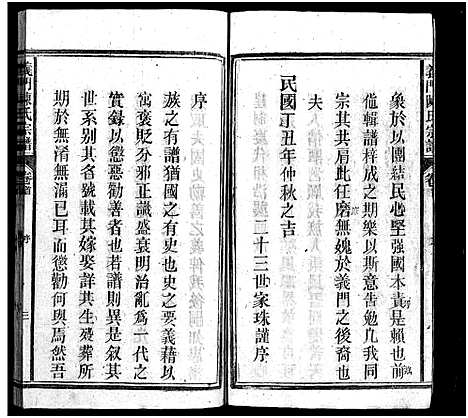 義門陳氏宗譜
象於以團結民心堅强國本責是賴也前
脩輯譜梓成之期樂以斯意告勉几我同
宗其共肩此任磨無媿於義門之後裔也
夫
民國丁丑年仲秋之吉
二十三世家珠謹序
序
族之有譜猶國之有史也史之要義藉以
寓褒貶分邪正識盛衰明治亂爲一代之
實錄以懲惡勸善也若譜則異是叙其
世系別其名號載其嫁娶詳其生殁葬所
期於無淆無漏已耳而懲勸何與焉然吾
義門陳氏宗譜
序
三